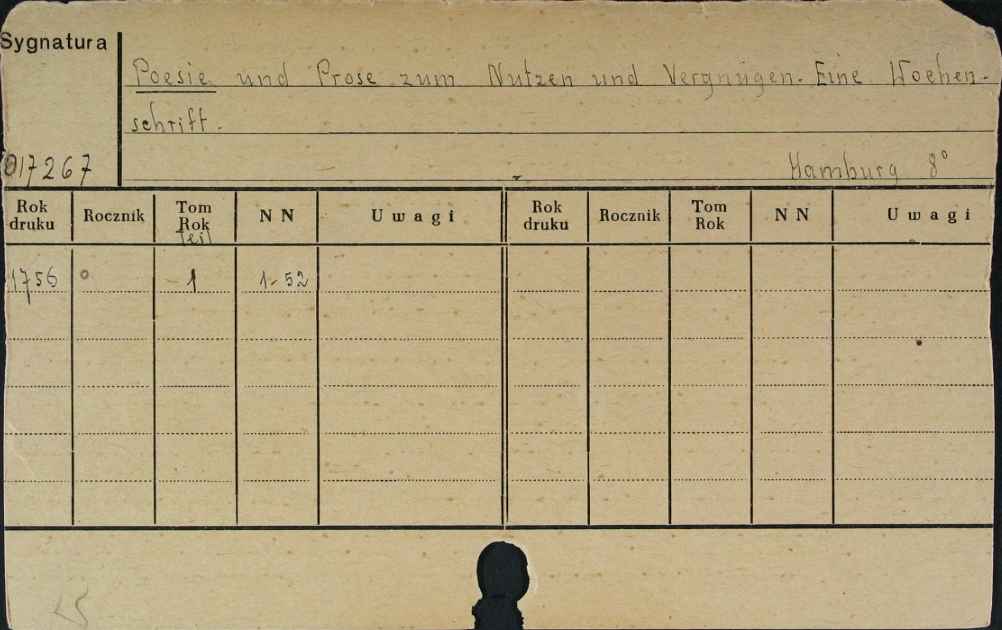 Sygnatura
Poesie und Prose zum Nutzen und Vergnügen. Eine Wochen-
schrift.
017267
Hamburg 8°
Rok druku Rocznik Tom Rok Teil NN Uwagi Rok druku Rocznik Tom Rok NN Uwagi
1756 1 1-52